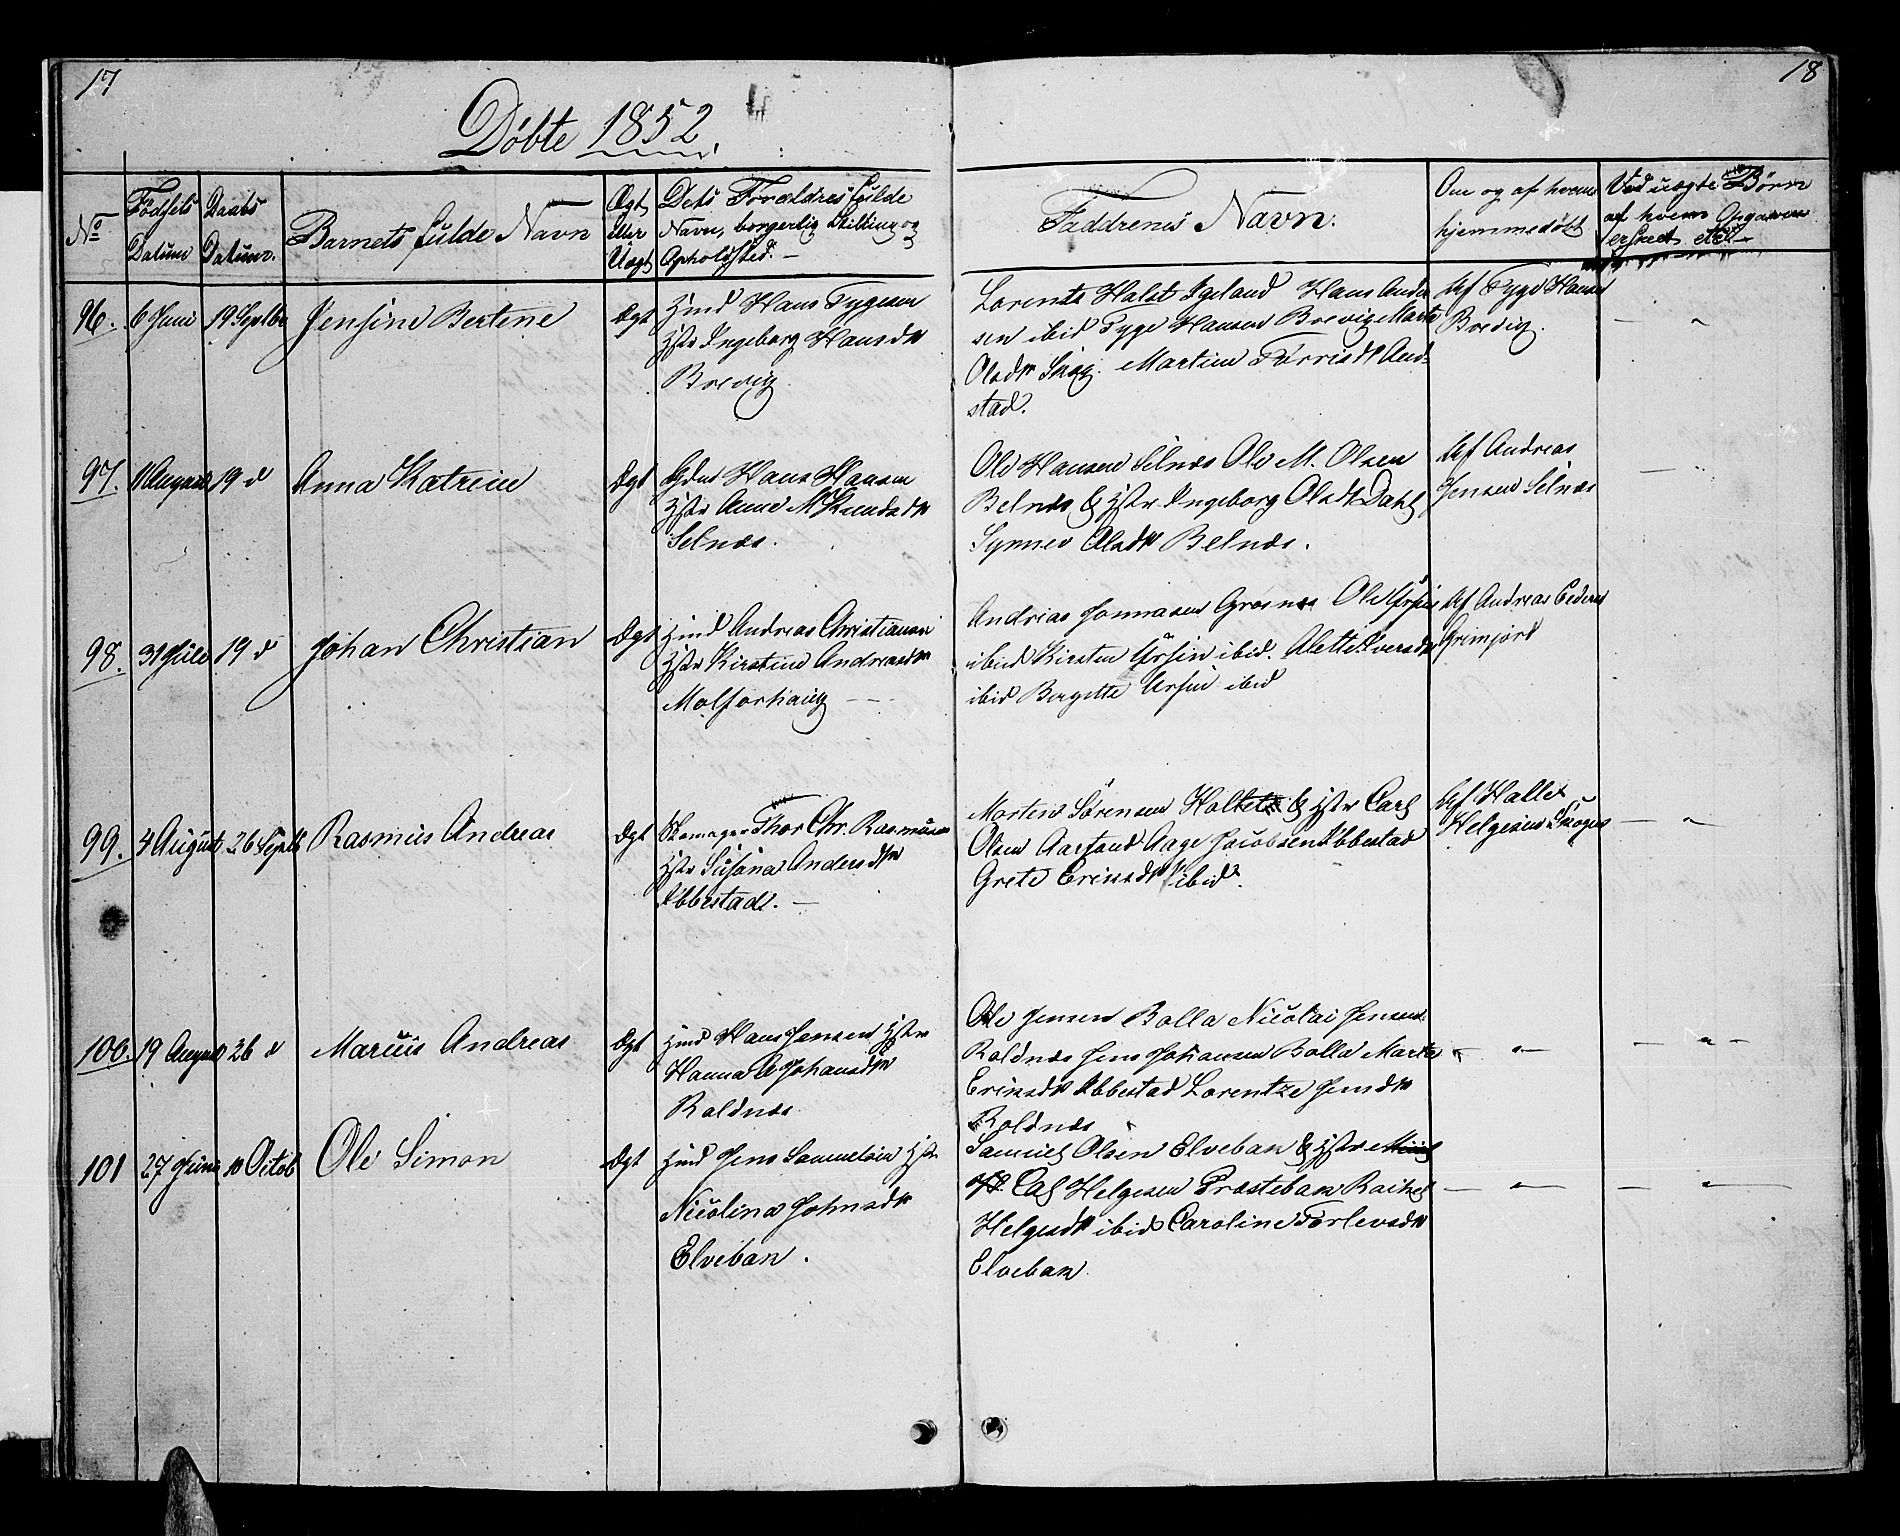 17
18
Døbte 1852
No
Fødsels
Datum
Daabs
Datum.
Barnets fulde Navn
Ægt
eller
Uægt
Dets Forældres fulde
Navn, borgerlig Stilling og
Opholdsted. —
Faddrenes Navn.
Om og af hvem
hjemmedøbt
Ved uægte Børn
af hvem Opgaven
96. 6 Juni 19 Septbr Jensine Bertene Ægt
Hans Tygesen
Ingeborg Hansdtr
Brevig
Lorents Halst Igeland Hans Ander
sen ibid Tyge Hansen Brevig Marta
Olsdtr Skog. Martine Torrisdtr And-
stad.
Af Tyge Hansen
Brevig.
97. 11 August 19 d Anna Katrine Ægt
Hans Hansen
Hstr Anne M Knudsdtr
Selnæs.
Ole Hansen Selnæs Ole M. Olsen
Belnæs & Hstr Ingeborg Olsdtr Dahl
Synnev Olsdtr Belnæs.
Af Andreas
Jensen Selnæs
98. 31 Juli 19 d Johan Christian Ægt
Andreas Christiansen
Hstr Kirstine Andreasdtr
Molforhaug
Andreas Jonnasen Grosnes Ole Ursin
ibid Kirsten Ursin ibid. Alette Iversdtr
ibid Bergette Ursin ibid
Af Andreas Peders
Grimjord
99. 4 August 26 Septb Rasmus Andreas Ægt
Skomager Thor Chr. Rasmusen
Hstr Susana Andersdtr
Ibbestad. —
Morten Sørensen & Hstr Carl
Olsen Aarsand Aage Jacobsen Ibbestad
Grete Ericksdtr ibid.
Af Halle
Helgesen Skogen
100. 19 August 26 d Marcus Andreas Ægt
Hans Jensen Hstr
Hanna A Johansdtr
Roldnæs
Ole Jensen Bolla Nicolai Jensen
Roldnæs Jens Johansen Bolla Marta
Ericksdtr Ibbestad Lorentze Jensdtr
Roldnæs
101 27 Juni 10 Octob Ole Simon Ægt
Jens Samuelsen Hstr
Nicolina Johnsdtr
Elveban.
Samuel Olsen Elveban & Hstr
Carl Helgesen Præsteban Rachel
Helgesdtr ibid Caroline Torlevsdtr
Elveban